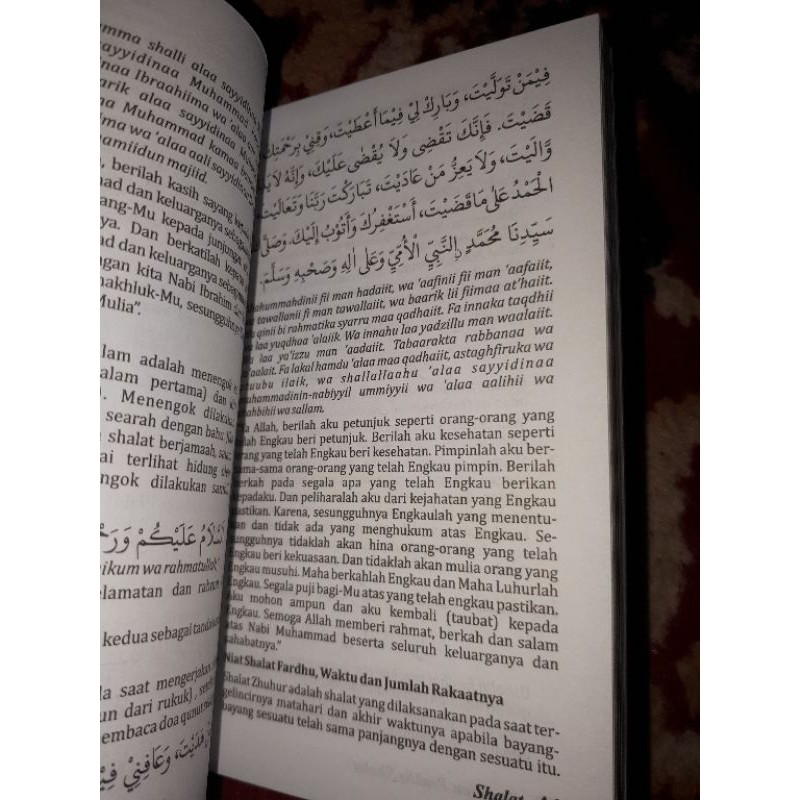 mma shalli alaa sayyidinaa
ayyidinaa Muhammad
dinaa Ibraahiima wa 'alaa
arik alaa sayyidinaa
na Muhammad kamaa
ima wa 'alaa aali sayyidinaa
amiidun majiid.
, berilah kasih sayang
ad dan keluarganya sebagai
ang-Mu kepada junjungan
ya. Dan berkatilah
ad dan keluarganya
ngan kita Nabi Ibrahim
makhluk-Mu, sesungguhnya
Mulia".
lam adalah menengok
salam pertama) dan
). Menengok dilakukan
searah dengan bahu
shalat berjamaah,
ai terlihat hidung
ngok dilakukan
اَلسَّلَامُ عَلَيْكُمْ وَرَحْ
aikum wa rahmatullah
elamatan dan
kedua sebagai
da saat mengerjakan
un dari rukuk),
embaca doa qunut
هَدَيْتَ، وَعَافِنِيْ فِيْ
فِيْمَنْ تَوَلَّيْتَ، وَبَارِكْ لِيْ فِيْمَا أَعْطَيْتَ، وَقِنِيْ بِرَحْمَتِكَ
قَضَيْتَ. فَإِنَّكَ تَقْضِى وَلَا يُقْضَى عَلَيْكَ، وَإِنَّهُ لَا
وَالَيْتَ، وَلَا يَعِزُّ مَنْ عَادَيْتَ، تَبَارَكْتَ رَبَّنَا وَتَعَالَيْتَ
الْحَمْدُ عَلَى مَا قَضَيْتَ، أَسْتَغْفِرُكَ وَأَتُوْبُ إِلَيْكَ. وَصَلَّى
سَيِّدِنَا مُحَمَّدٍ نِالنَّبِيِّ الْأُمِّيِّ وَعَلَى اٰلِهِ وَصَحْبِهِ وَسَلَّمَ.
ahummahdinii fii man hadaiit, wa 'aafinii fii man 'aafaiit,
tawallanii fi man tawallaiit, wa baarik lii fiimaa at'haiit.
qinii bi rahmatika syarra maa qadhaiit. Fa innaka taqdhii
laa yuqdhaa 'alaiik. Wa innahu laa yadzillu man waalaiit.
laa ya'izzu man 'aadaiit. Tabaarakta rabbanaa wa
'aalait. Fa lakal hamdu 'alaa maa qadhaiit, astaghfiruka wa
tuubu ilaik, wa shallallaahu 'alaa sayyidinaa
uhammadinin-nabiyyil ummiyyii wa 'alaa aalihii wa
ahbihii wa sallam.
a Allah, berilah aku petunjuk seperti orang-orang yang
elah Engkau beri petunjuk. Berilah aku kesehatan seperti
orang yang telah Engkau beri kesehatan. Pimpinlah aku ber-
sama-sama orang-orang yang telah Engkau pimpin. Berilah
berkah pada segala apa yang telah Engkau berikan
kepadaku. Dan peliharalah aku dari kejahatan yang Engkau
pastikan. Karena, sesungguhnya Engkaulah yang menentu-
kan dan tidak ada yang menghukum atas Engkau. Se-
sungguhnya tidaklah akan hina orang-orang yang telah
Engkau beri kekuasaan. Dan tidaklah akan mulia orang yang
Engkau musuhi. Maha berkahlah Engkau dan Maha Luhurlah
Engkau. Segala puji bagi-Mu atas yang telah engkau pastikan.
Aku mohon ampun dan aku kembali (taubat) kepada
Engkau. Semoga Allah memberi rahmat, berkah dan salam
atas Nabi Muhammad beserta seluruh keluarganya dan
sahabatnya."
Niat Shalat Fardhu, Waktu dan Jumlah Rakaatnya
Shalat Zhuhur adalah shalat yang dilaksanakan pada saat ter-
gelincirnya matahari dan akhir waktunya apabila bayang-
bayang sesuatu telah sama panjangnya dengan sesuatu itu.